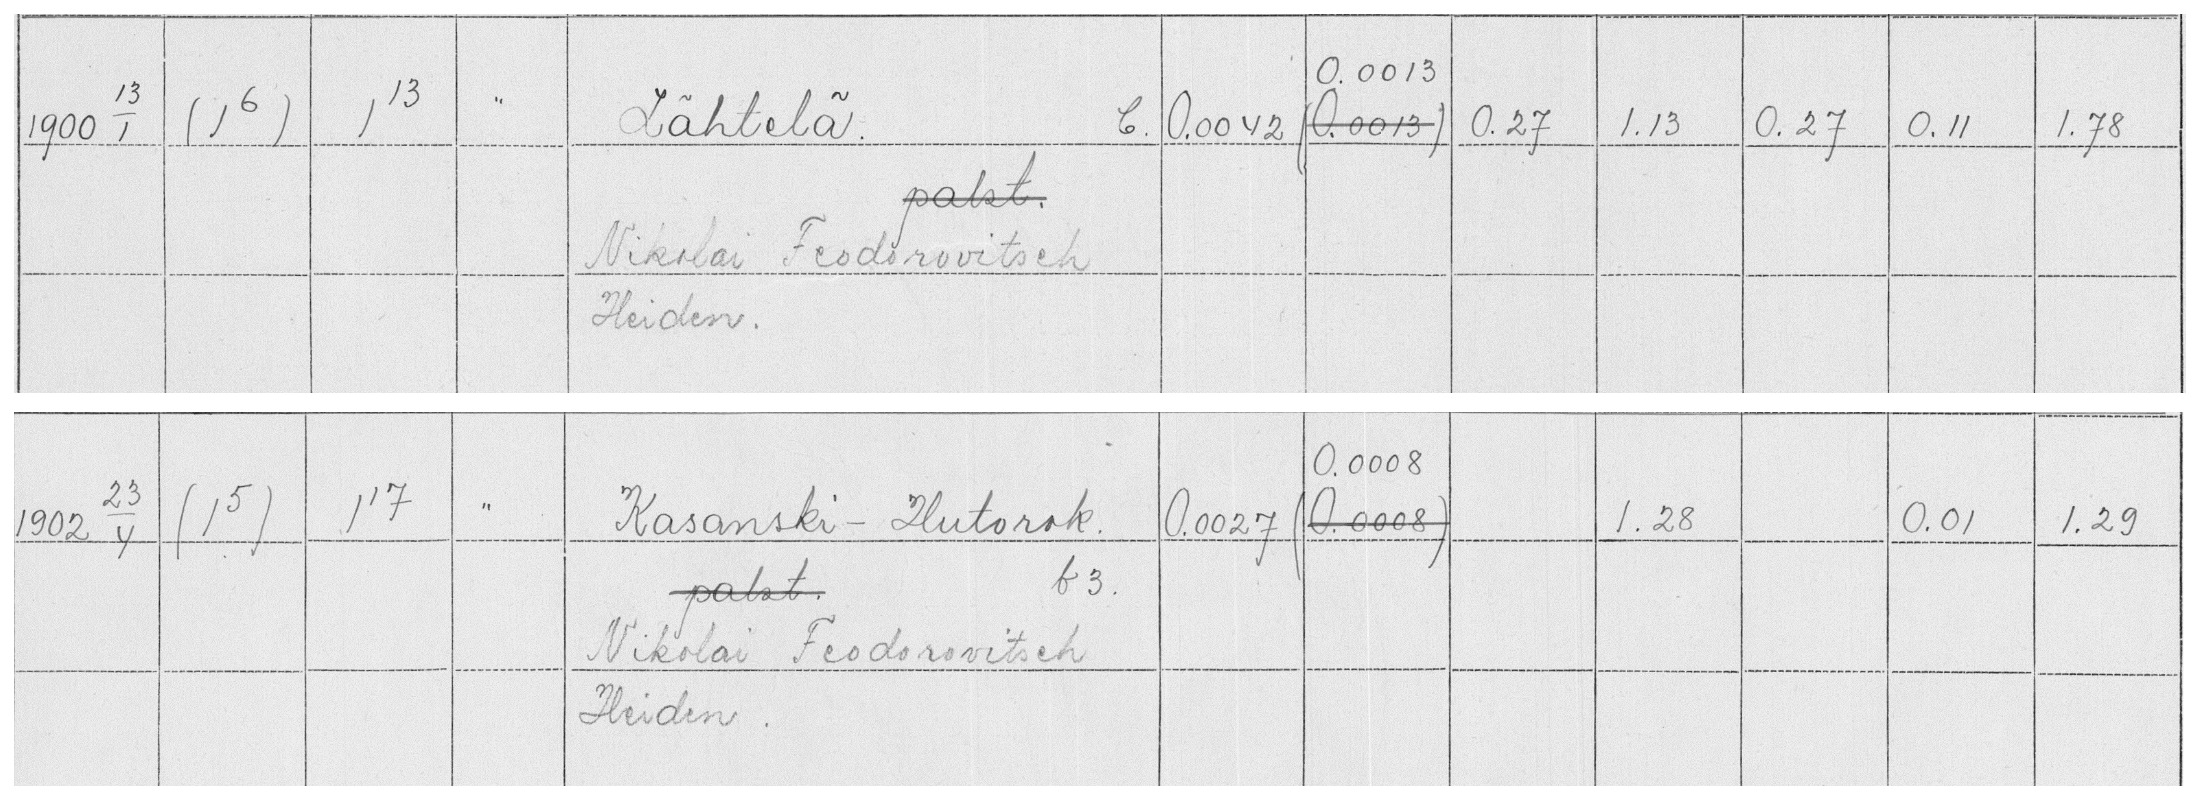 0.0013
1900 13/1 (1⁶) 1¹³ " Lähtelä. C. 0.0042 (0.0013) 0.27 1.13 0.27 0.11 1.78
palst.
Nikolai Feodorovitsch
Heiden.
0.0008
1902 23/4 (1⁵) 1¹⁷ " Kasanski-Hutorok. 0.0027 (0.0008) 1.28 0.01 1.29
palst. b 3.
Nikolai Feodorovitsch
Heiden.